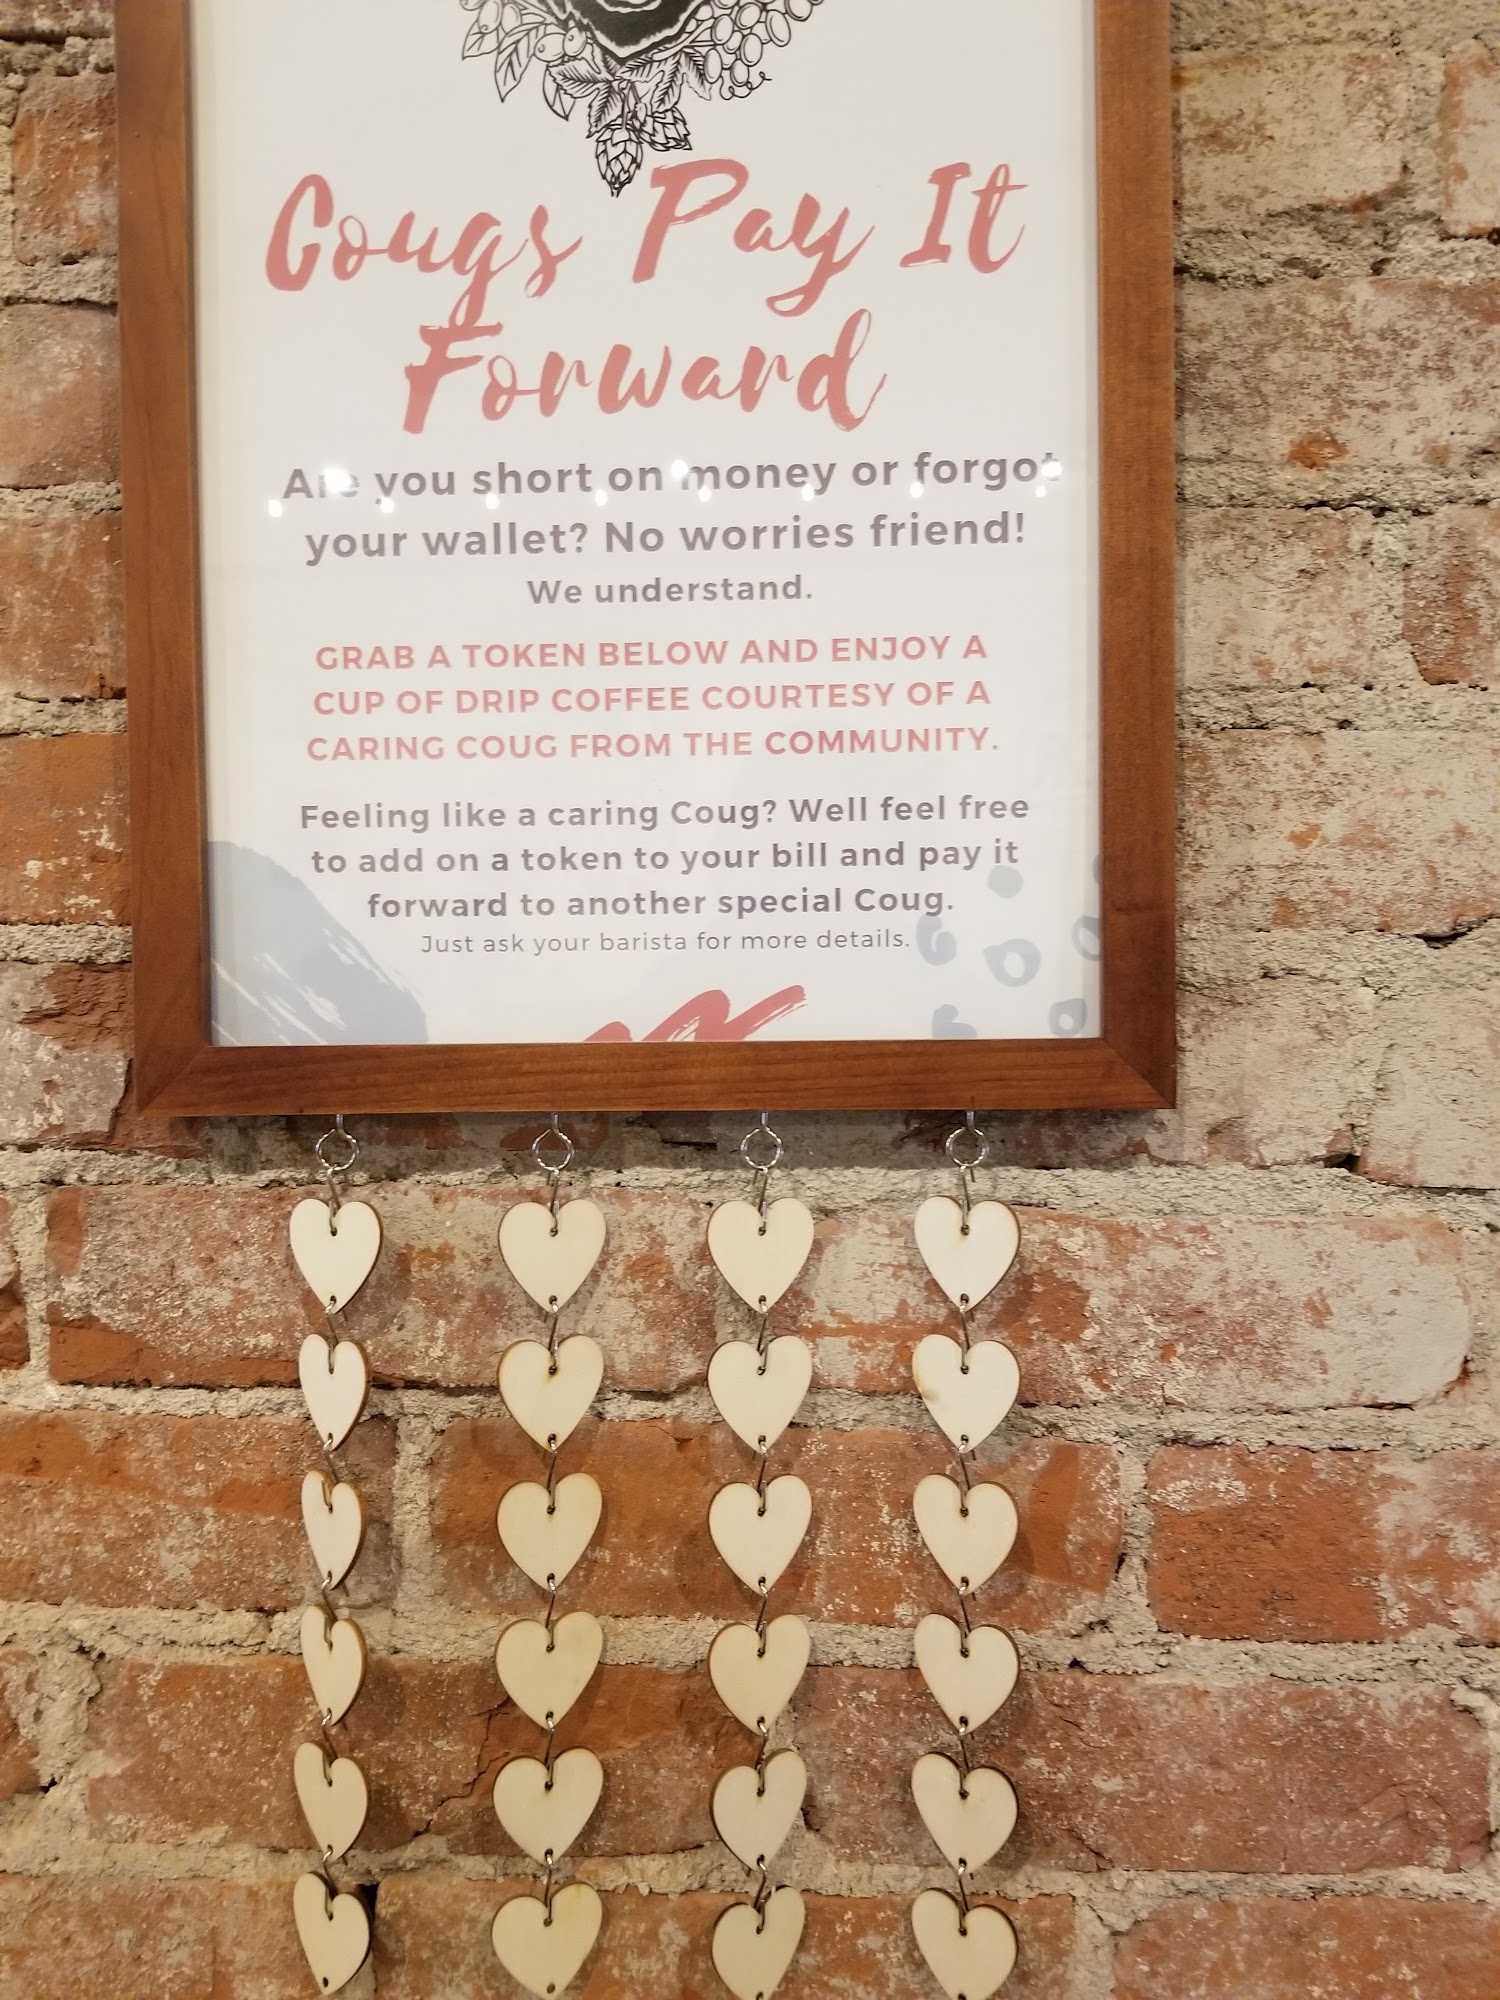 Cougs Pay It
Forward
Are you short on money or forgot
your wallet? No worries friend!
We understand.
GRAB A TOKEN BELOW AND ENJOY A
CUP OF DRIP COFFEE COURTESY OF A
CARING COUG FROM THE COMMUNITY.
Feeling like a caring Coug? Well feel free
to add on a token to your bill and pay it
forward to another special Coug.
Just ask your barista for more details.